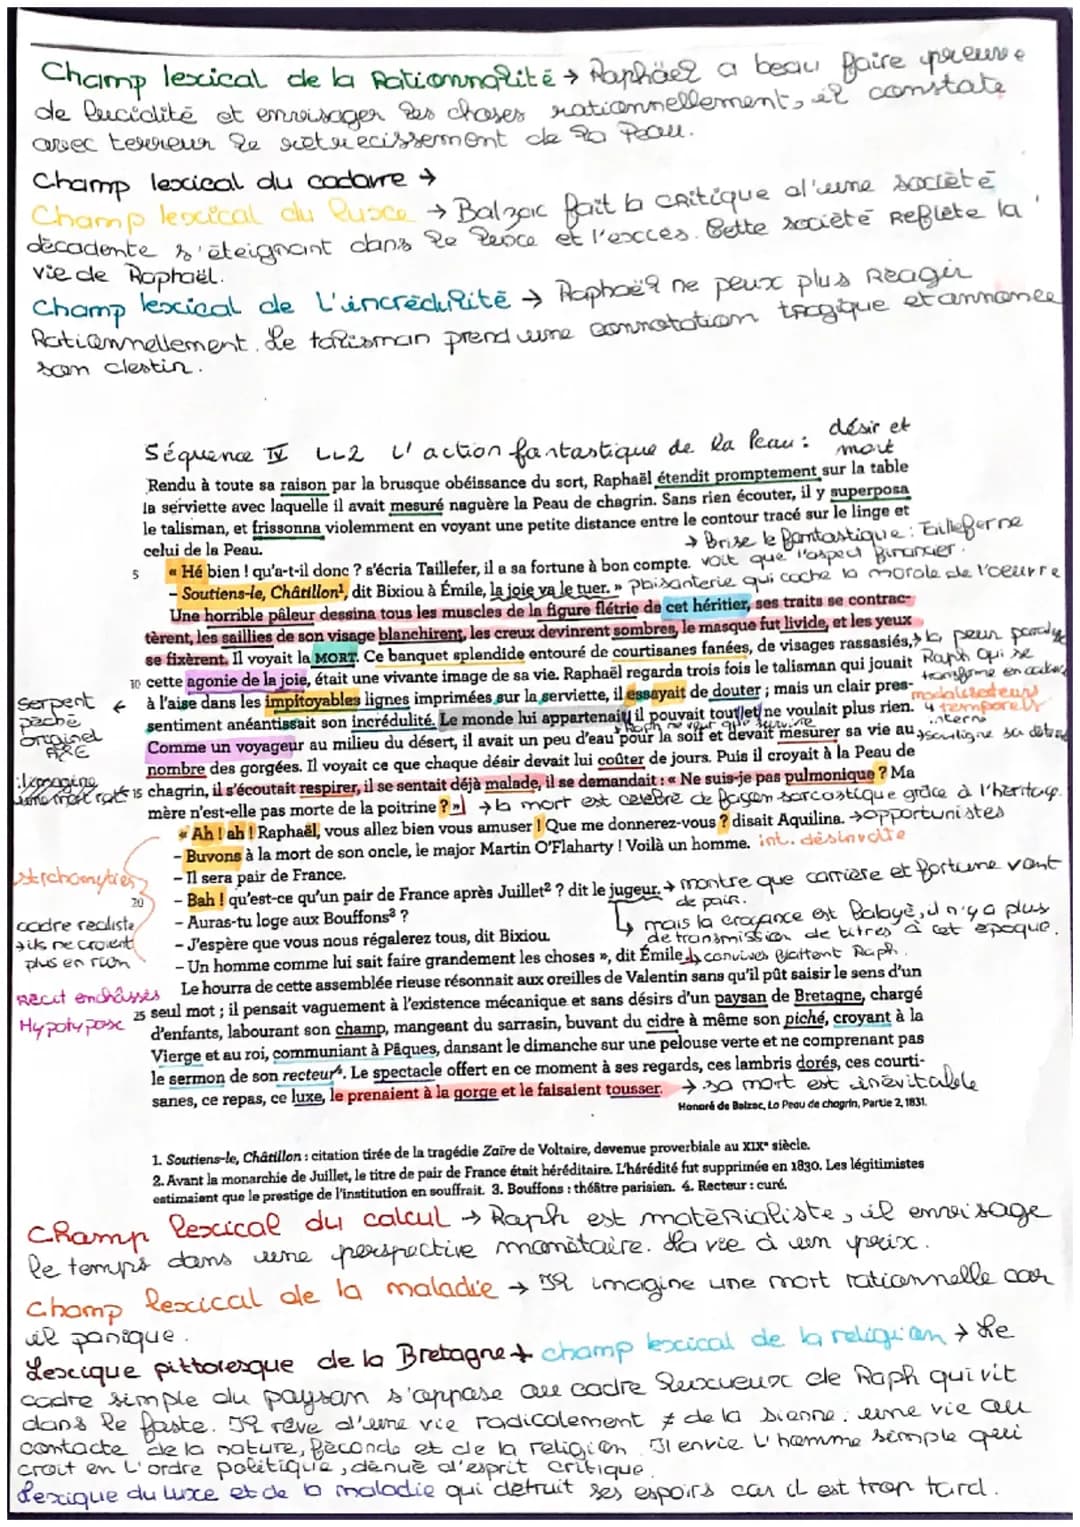 Champ lexical de la Rationnalité → Raphaël a beau faire preuve
de lucidité et envisager les choses rationnellement, il constate
avec terreur le retrecissement de la Peau.
Champ lexical du cadavre →
Champ lexical du luxe → Balzac fait la critique d'une société
décadente s'éteignant dans le luxe et l'excès. Cette société Reflète la
vie de Raphaël.
Champ lexical de L'incrédulité → Raphaël ne peux plus Réagir
Rationnellement. Le talisman prend une connotation tragique et annonce
son destin.
Séquence IV LL2 L'action fantastique de la Peau : désir et
mort
Rendu à toute sa raison par la brusque obéissance du sort, Raphaël étendit promptement sur la table
la serviette avec laquelle il avait mesuré naguère la Peau de chagrin. Sans rien écouter, il y superposa
le talisman, et frissonna violemment en voyant une petite distance entre le contour tracé sur le linge et
celui de la Peau.
→ Brise le fantastique : Tailleferne
5 « Hé bien ! qu'a-t-il donc ? s'écria Taillefer, il a sa fortune à bon compte. voit que l'aspect financier.
– Soutiens-le, Châtillon¹, dit Bixiou à Émile, la joie va le tuer. » plaisanterie qui cache la morale de l'oeuvre
Une horrible pâleur dessina tous les muscles de la figure flétrie de cet héritier, ses traits se contrac-
tèrent, les saillies de son visage blanchirent, les creux devinrent sombres, le masque fut livide, et les yeux
se fixèrent. Il voyait la MORT. Ce banquet splendide entouré de courtisanes fanées, de visages rassasiés, → la peur paralyse
10 cette agonie de la joie, était une vivante image de sa vie. Raphaël regarda trois fois le talisman qui jouait Raph qui se
transforme en
Serpent ← à l'aise dans les impitoyables lignes imprimées sur la serviette, il essayait de douter ; mais un clair pres-
péché
originel
modalisateurs
sentiment anéantissait son incrédulité. Le monde lui appartenait, il pouvait tout et ne voulait plus rien. 4 temporels
interne
Comme un voyageur au milieu du désert, il avait un peu d'eau pour la soif et devait mesurer sa vie au → souligne sa
nombre des gorgées. Il voyait ce que chaque désir devait lui coûter de jours. Puis il croyait à la Peau de
15 chagrin, il s'écoutait respirer, il se sentait déjà malade, il se demandait : « Ne suis-je pas pulmonique ? Ma
mère n'est-elle pas morte de la poitrine ? » → la mort est célébré de façon sarcastique grâce à l'héritage.
« Ah ! ah ! Raphaël, vous allez bien vous amuser ! Que me donnerez-vous ? disait Aquilina. → opportunistes
– Buvons à la mort de son oncle, le major Martin O'Flaharty ! Voilà un homme. int. désinvolte
– Il sera pair de France.
stichomythies
20 – Bah ! qu'est-ce qu'un pair de France après Juillet² ? dit le jugeur. → montre que carrière et fortune vont
de pair.
cadre realiste
– Auras-tu loge aux Bouffons³ ?
↳ mais la croyance est Balayé, il n'y a plus
→ ils ne croient
plus en rien
– J'espère que vous nous régalerez tous, dit Bixiou.
de transmission de titres à cet époque.
– Un homme comme lui sait faire grandement les choses », dit Émile. ↳ convives flattent Raph.
Récit enchâssés
Le hourra de cette assemblée rieuse résonnait aux oreilles de Valentin sans qu'il pût saisir le sens d'un
Hypotypose
25 seul mot ; il pensait vaguement à l'existence mécanique et sans désirs d'un paysan de Bretagne, chargé
d'enfants, labourant son champ, mangeant du sarrasin, buvant du cidre à même son piché, croyant à la
Vierge et au roi, communiant à Pâques, dansant le dimanche sur une pelouse verte et ne comprenant pas
le sermon de son recteur⁴. Le spectacle offert en ce moment à ses regards, ces lambris dorés, ces courti-
sanes, ce repas, ce luxe, le prenaient à la gorge et le faisaient tousser. → sa mort est inévitable
Honoré de Balzac, La Peau de chagrin, Partie 2, 1831.
1. Soutiens-le, Châtillon : citation tirée de la tragédie Zaïre de Voltaire, devenue proverbiale au XIXᵉ siècle.
2. Avant la monarchie de Juillet, le titre de pair de France était héréditaire. L'hérédité fut supprimée en 1830. Les légitimistes
estimaient que le prestige de l'institution en souffrait. 3. Bouffons : théâtre parisien. 4. Recteur : curé.
Champ lexical du calcul → Raph est matérialiste, il envisage
le temps dans une perspective monétaire. La vie à un prix.
Champ lexical de la maladie → Il imagine une mort rationnelle car
il panique.
Lexique pittoresque de la Bretagne + champ lexical de la religion → Le
cadre simple du paysan s'oppose au cadre luxueux de Raph qui vit
dans le faste. Il rêve d'une vie radicalement ≠ de la sienne : une vie au
contacte de la nature, féconde et de la religion. Il envie L'homme simple qui
croit en L'ordre politique, dénué d'esprit critique.
Lexique du luxe et de la maladie qui détruit ses espoirs car il est trop tard.